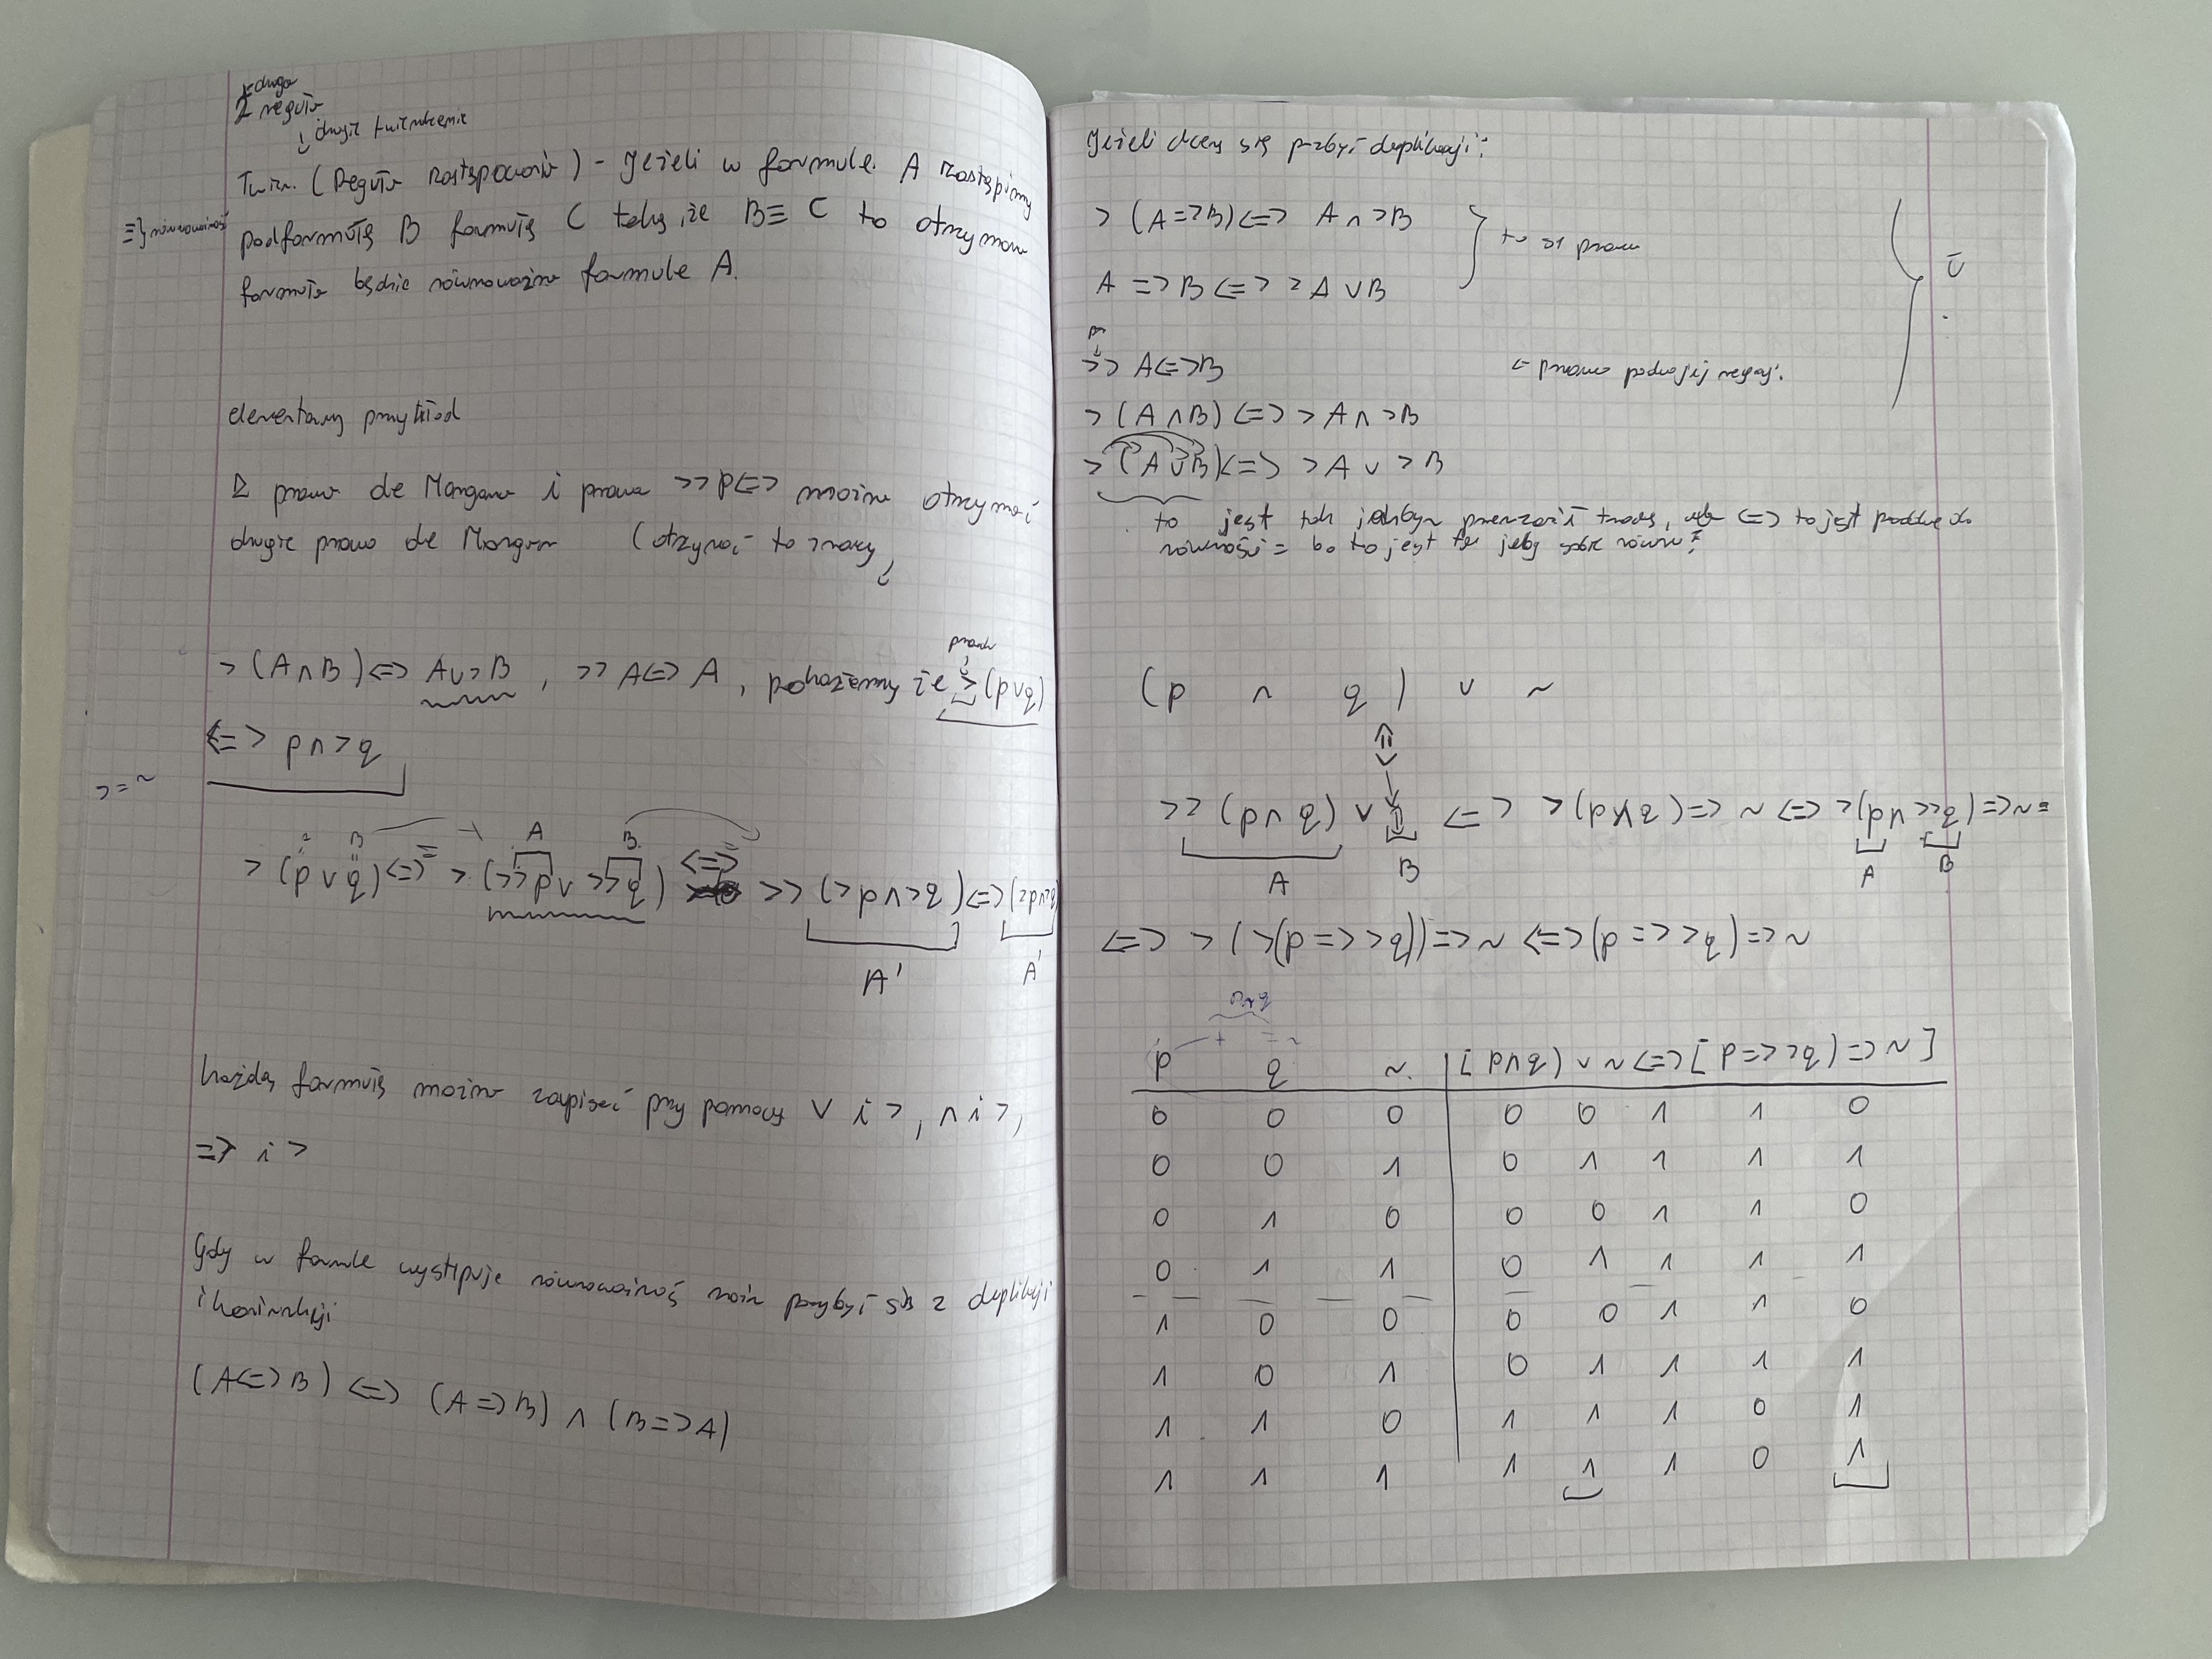 druga
2 reguła
↓ drugie twierdzenie
Twier. (Reguła zastępowania) - Jeżeli w formule A zastąpimy
≡} równoważność
podformułę B formułą C taką, że B ≡ C to otrzymana
formuła będzie równoważna formule A.
elementarny przykład
Z prawa de Morgana i prawa >> p <=> można otrzymać
drugie prawo de Morgana (otrzymać to znaczy
> (A ∧ B) <=> A ∨ > B , >> A <=> A , pokażemy że > (p ∨ q)
<=> p ∧ > q
> = ~
A B
> (p ∨ q) <=> > (>> p ∨ >> q) <=> >> (> p ∧ > q) <=> (> p ∧ > q)
A' A'
Każdą formułę można zapisać przy pomocy ∨ i > , ∧ i > ,
=> i >
Gdy w formule występuje równoważność można pozbyć się z
i koniunkcji
(A <=> B) <=> (A => B) ∧ (B => A)
Jeżeli chcemy się pozbyć
> (A => B) <=> A ∧ > B } to są prawa
A => B <=> > A ∨ B
>> A <=> B ← prawo podwójnej negacji.
> (A ∧ B) <=> > A ∧ > B
> (A ∨ B) <=> > A ∨ > B
to jest tak jakbym <=> to jest
równości = bo to jest tak jakby sobie równe
(p ∧ q) ∨ ~
>> (p ∧ q) ∨ <=> > (p ∧ q) => ~ <=> > (p ∧ >> q) => ~ =
A B A B
<=> > (> (p => > q)) => ~ <=> (p => > q) => ~
p q ~ [ p ∧ q) ∨ ~ <=> [ p => > q) => ~ ]
0 0 0 0 0 1 1 0
0 0 1 0 1 1 1 1
0 1 0 0 0 1 1 0
0 1 1 0 1 1 1 1
1 0 0 0 0 1 1 0
1 0 1 0 1 1 1 1
1 1 0 1 1 1 0 1
1 1 1 1 1 1 0 1